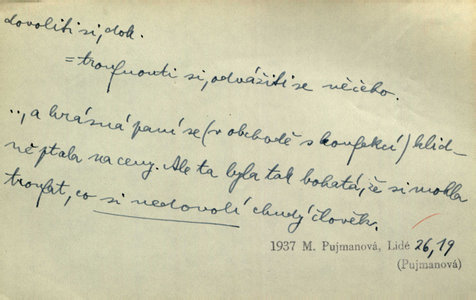 dovoliti si, dok.
= troufnouti si, odvážiti se něčeho.
.., a krásná paní se (v obchodě s konfekcí) klid-
ně ptala na ceny. Ale ta byla tak bohatá, že si mohla
troufat, co si nedovolí chudý člověk.
1937 M. Pujmanová, Lidé 26,19
(Pujmanová)